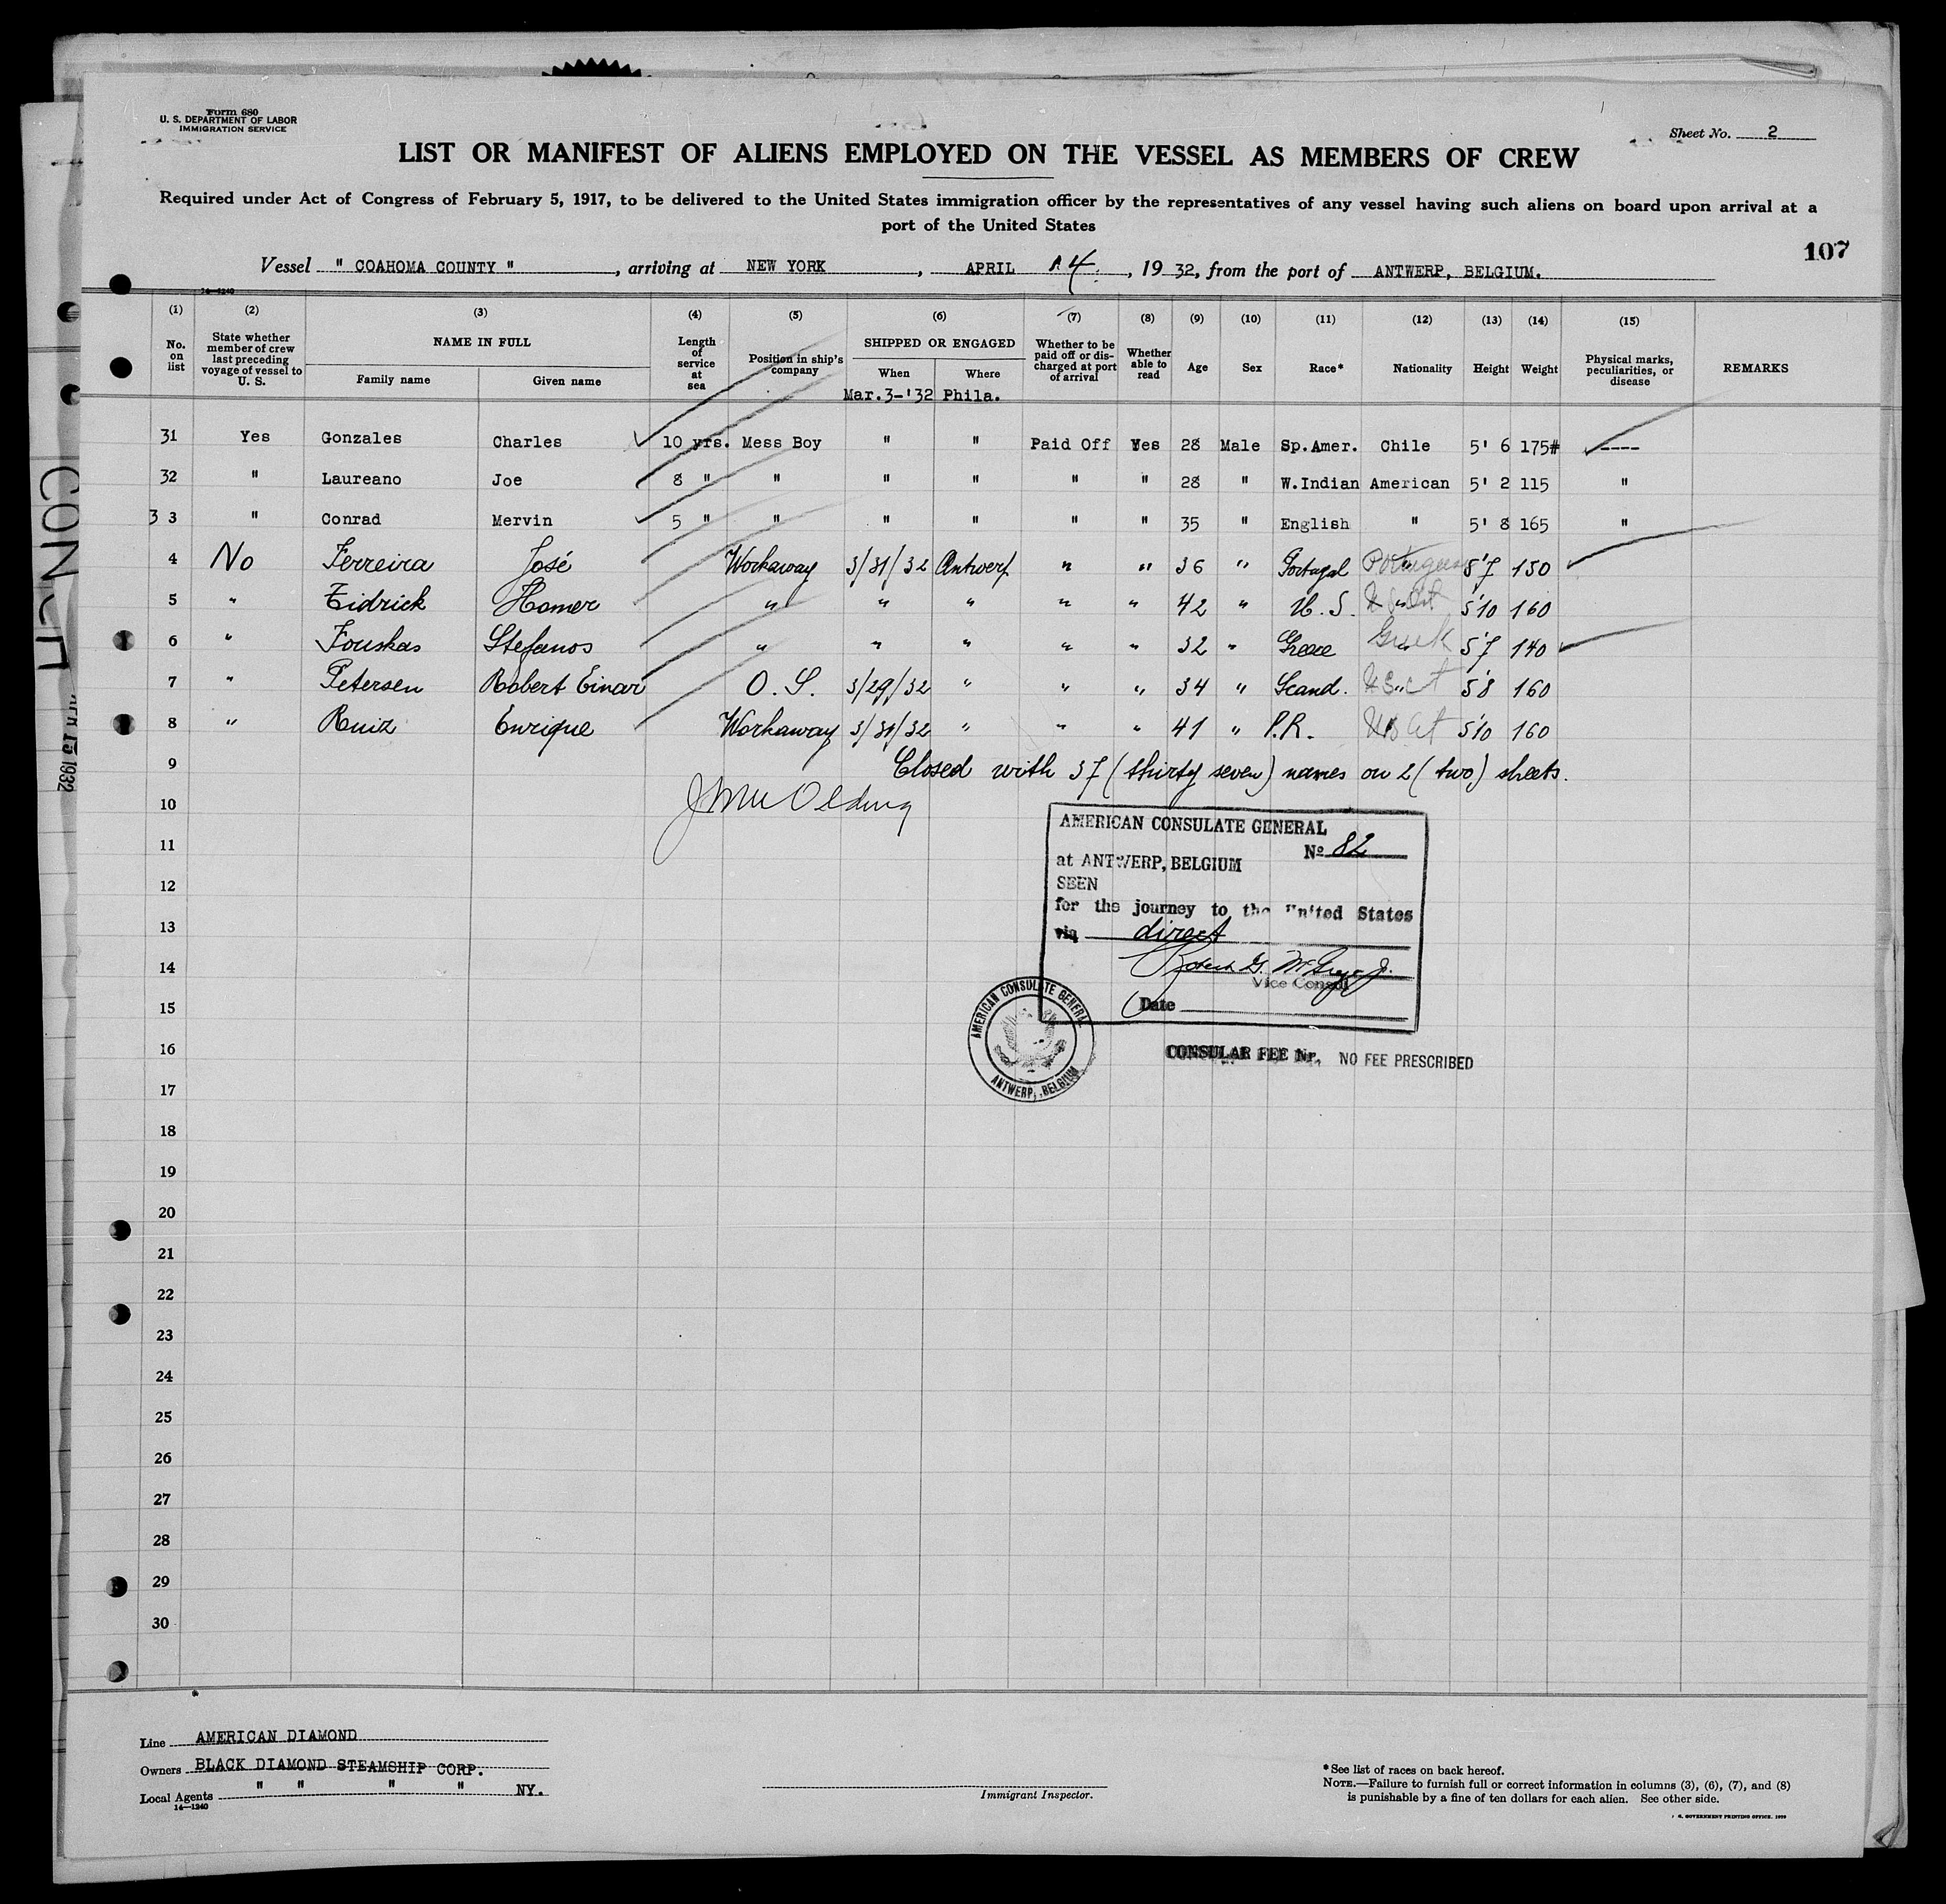 Form 680
U. S. DEPARTMENT OF LABOR
IMMIGRATION SERVICE
Sheet No. 2
LIST OR MANIFEST OF ALIENS EMPLOYED ON THE VESSEL AS MEMBERS OF CREW
Required under Act of Congress of February 5, 1917, to be delivered to the United States immigration officer by the representatives of any vessel having such aliens on board upon arrival at a
port of the United States
107
Vessel " COAHOMA COUNTY " , arriving at NEW YORK , APRIL 14. , 19 32, from the port of ANTWERP, BELGIUM.
14—1240
(1) (2) (3) (4) (5) (6) (7) (8) (9) (10) (11) (12) (13) (14) (15)
No. on list State whether member of crew last preceding voyage of vessel to U. S. NAME IN FULL Family name Given name Length of service at sea Position in ship's company SHIPPED OR ENGAGED When Where Whether to be paid off or discharged at port of arrival Whether able to read Age Sex Race* Nationality Height Weight Physical marks, peculiarities, or disease REMARKS
Mar.3-'32 Phila.
31 Yes Gonzales Charles 10 yrs. Mess Boy " " Paid Off Yes 28 Male Sp.Amer. Chile 5' 6 175# ----
32 " Laureano Joe 8 " " " " " " 28 " W.Indian American 5' 2 115 "
3 3 " Conrad Mervin 5 " " " " " " 35 " English " 5' 8 165 "
4 No Ferreira José Workaway 3/31/32 Antwerp " " 36 " Portugal Portuguese 5'7 150
5 " Tidrick Homer " " " " " 42 " U. S. 5'10 160
6 " Fouskas Stefanos " " " " " 32 " Greece Greek 5'7 140
7 " Petersen Robert Einar O. S. 3/29/32 " " " 34 " Scand. 5'8 160
8 " Ruiz Enrique Workaway 3/31/32 " " " 41 " P.R. 5'10 160
9 Closed with 37 (thirty seven) names on 2 (two) sheets.
10
11
12
13
14
15
16
17
18
19
20
21
22
23
24
25
26
27
28
29
30
AMERICAN CONSULATE GENERAL
No 82
at ANTWERP, BELGIUM
SEEN
for the journey to the United States
via direct
Vice Consul
Date
AMERICAN CONSULATE GENERAL
ANTWERP, BELGIUM
CONSULAR FEE Nr. NO FEE PRESCRIBED
Line AMERICAN DIAMOND
Owners BLACK DIAMOND STEAMSHIP CORP.
Local Agents " " " " NY.
14—1240
Immigrant Inspector.
*See list of races on back hereof.
NOTE.—Failure to furnish full or correct information in columns (3), (6), (7), and (8)
is punishable by a fine of ten dollars for each alien. See other side.